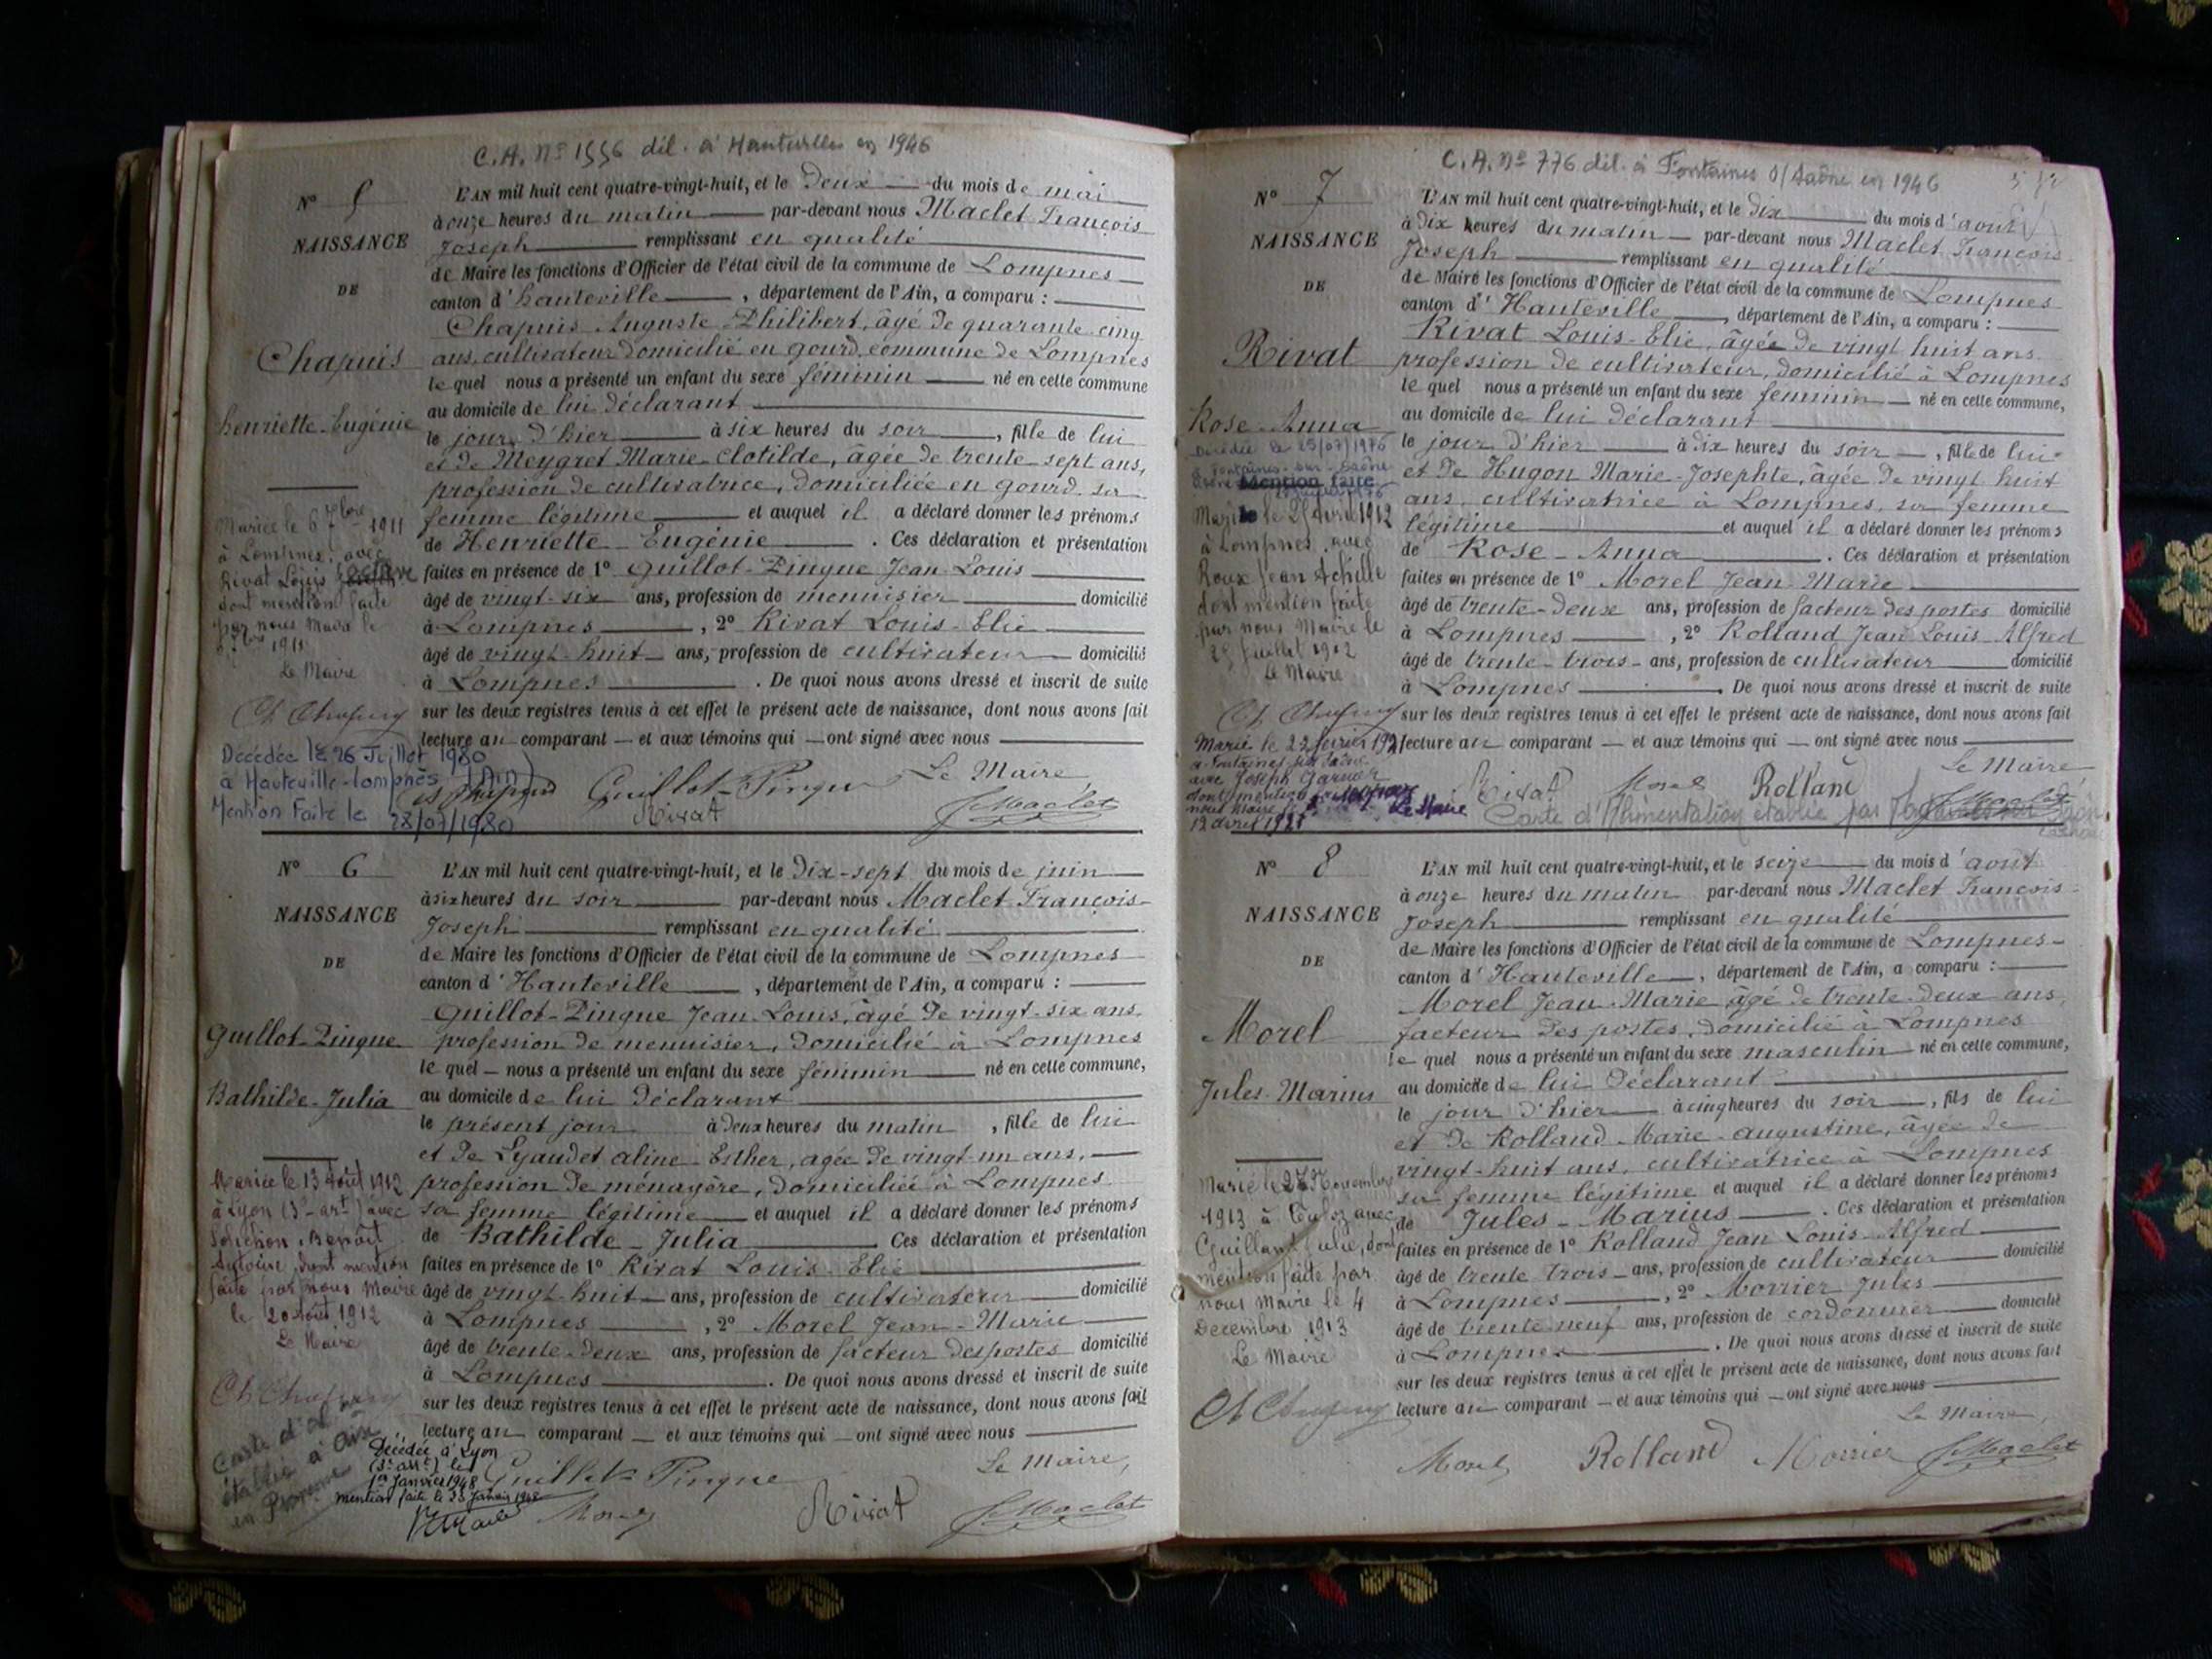 C.A. Nº 1556 dél. à Hauteville en 1946
Nº 5
NAISSANCE
DE
Chapuis
Henriette-Eugénie
Mariée le 6 7bre 1911
à Lompnes avec
Rivat Louis
dont mention faite
par nous Maire le
7bre 1911
Le Maire
Décédée le 26 Juillet 1980
à Hauteville-Lompnès (Ain)
Mention Faite le 28/07/1980
L'AN mil huit cent quatre-vingt-huit, et le deux du mois de mai
à onze heures du matin par-devant nous Maclet François
Joseph remplissant en qualité
de Maire les fonctions d'Officier de l'état civil de la commune de Lompnes
canton d'hauteville, département de l'Ain, a comparu :
Chapuis Auguste-Philibert, âgé de quarante-cinq
ans, cultivateur domicilié en gourd, commune de Lompnes
le quel nous a présenté un enfant du sexe féminin né en cette commune
au domicile de lui déclarant
le jour d'hier à six heures du soir, fille de lui
et de Meygret Marie-Clotilde, âgée de trente-sept ans,
profession de cultivatrice, domiciliée en gourd, sa
femme légitime et auquel il a déclaré donner les prénoms
de Henriette-Eugénie. Ces déclaration et présentation
faites en présence de 1º Guillot-Pingue Jean-Louis
âgé de vingt-six ans, profession de menuisier domicilié
à Lompnes, 2º Rivat Louis-Elie
âgé de vingt-huit ans, profession de cultivateur domicilié
à Lompnes. De quoi nous avons dressé et inscrit de suite
sur les deux registres tenus à cet effet le présent acte de naissance, dont nous avons fait
lecture au comparant — et aux témoins qui — ont signé avec nous
Le Maire
Guillot-Pingue
Rivat
Maclet
Nº 6
NAISSANCE
DE
Guillot-Pingue
Bathilde-Julia
Mariée le 13 Août 1912
à Lyon (3e arrt) avec
Benoît
Antoine, dont mention
faite par nous Maire
le 20 Août 1912
Le Maire
Carte d'
établie à Aix
en Provence
Décédée à Lyon
(3e arrt) le
1er Janvier 1948
mention faite le 23 Janvier 1948
L'AN mil huit cent quatre-vingt-huit, et le dix-sept du mois de juin
à six heures du soir par-devant nous Maclet François-
Joseph remplissant en qualité
de Maire les fonctions d'Officier de l'état civil de la commune de Lompnes
canton d'Hauteville, département de l'Ain, a comparu :
Guillot-Pingue Jean-Louis, âgé de vingt-six ans,
profession de menuisier, domicilié à Lompnes
le quel — nous a présenté un enfant du sexe féminin né en cette commune,
au domicile de lui déclarant
le présent jour à deux heures du matin, fille de lui
et de Lyaudet Aline-Esther, agée de vingt-un ans,
profession de ménagère, domiciliée à Lompnes
sa femme légitime et auquel il a déclaré donner les prénoms
de Bathilde-Julia Ces déclaration et présentation
faites en présence de 1º Rivat Louis-Elie
âgé de vingt-huit ans, profession de cultivateur domicilié
à Lompnes, 2º Morel Jean-Marie
âgé de trente-deux ans, profession de facteur des postes domicilié
à Lompnes. De quoi nous avons dressé et inscrit de suite
sur les deux registres tenus à cet effet le présent acte de naissance, dont nous avons fait
lecture au comparant — et aux témoins qui — ont signé avec nous
Le Maire,
Guillot-Pingue
Morel
Rivat
Maclet
C.A. Nº 776 dél. à Fontaines s/Saône en 1946
Nº 7
NAISSANCE
DE
Rivat
Rose-Anna
Décédée le 25/07/1976
à Fontaines-sur-Saône
Mention faite
à Lompnes, avec
Roux Jean Achille
dont mention faite
par nous Maire le
Juillet 1912
Le Maire
à Fontaines sur Saône
avec Joseph Garnier
Le Maire
L'AN mil huit cent quatre-vingt-huit, et le dix du mois d'août
à dix heures du matin par-devant nous Maclet François-
Joseph remplissant en qualité
de Maire les fonctions d'Officier de l'état civil de la commune de Lompnes
canton d'Hauteville, département de l'Ain, a comparu :
Rivat Louis-Elie, âgée de vingt huit ans
profession de cultivateur, domicilié à Lompnes
le quel nous a présenté un enfant du sexe féminin né en cette commune,
au domicile de lui déclarant
le jour d'hier à dix heures du soir, fille de lui
et de Hugon Marie-Josephte, âgée de vingt huit
ans, cultivatrice à Lompnes, sa femme
légitime et auquel il a déclaré donner les prénoms
de Rose-Anna. Ces déclaration et présentation
faites en présence de 1º Morel Jean-Marie
âgé de trente-deux ans, profession de facteur des postes domicilié
à Lompnes, 2º Rolland Jean Louis Alfred
âgé de trente-trois ans, profession de cultivateur domicilié
à Lompnes. De quoi nous avons dressé et inscrit de suite
sur les deux registres tenus à cet effet le présent acte de naissance, dont nous avons fait
lecture au comparant — et aux témoins qui — ont signé avec nous
Le Maire
Rivat Morel Rolland
Maclet
Carte d'Alimentation établie par
Nº 8
NAISSANCE
DE
Morel
Jules-Marius
Marié le 27 Novembre
1913 à Culoz avec
Julie, dont
mention faite par
nous Maire le 4
Decembre 1913
Le Maire
L'AN mil huit cent quatre-vingt-huit, et le seize du mois d'août
à onze heures du matin par-devant nous Maclet François-
Joseph remplissant en qualité
de Maire les fonctions d'Officier de l'état civil de la commune de Lompnes
canton d'Hauteville, département de l'Ain, a comparu :
Morel Jean-Marie âgé de trente-deux ans,
facteur des postes, domicilié à Lompnes
le quel nous a présenté un enfant du sexe masculin né en cette commune,
au domicile de lui déclarant
le jour d'hier à cinq heures du soir, fils de lui
et de Rolland Marie-Augustine, âgée de
vingt-huit ans, cultivatrice à Lompnes
sa femme légitime et auquel il a déclaré donner les prénoms
de Jules-Marius. Ces déclaration et présentation
faites en présence de 1º Rolland Jean Louis-Alfred
âgé de trente trois ans, profession de cultivateur domicilié
à Lompnes, 2º Morrier Jules
âgé de trente neuf ans, profession de cordonnier domicilié
à Lompnes. De quoi nous avons dressé et inscrit de suite
sur les deux registres tenus à cet effet le présent acte de naissance, dont nous avons fait
lecture au comparant — et aux témoins qui — ont signé avec nous
Le Maire,
Morel Rolland Morrier Maclet